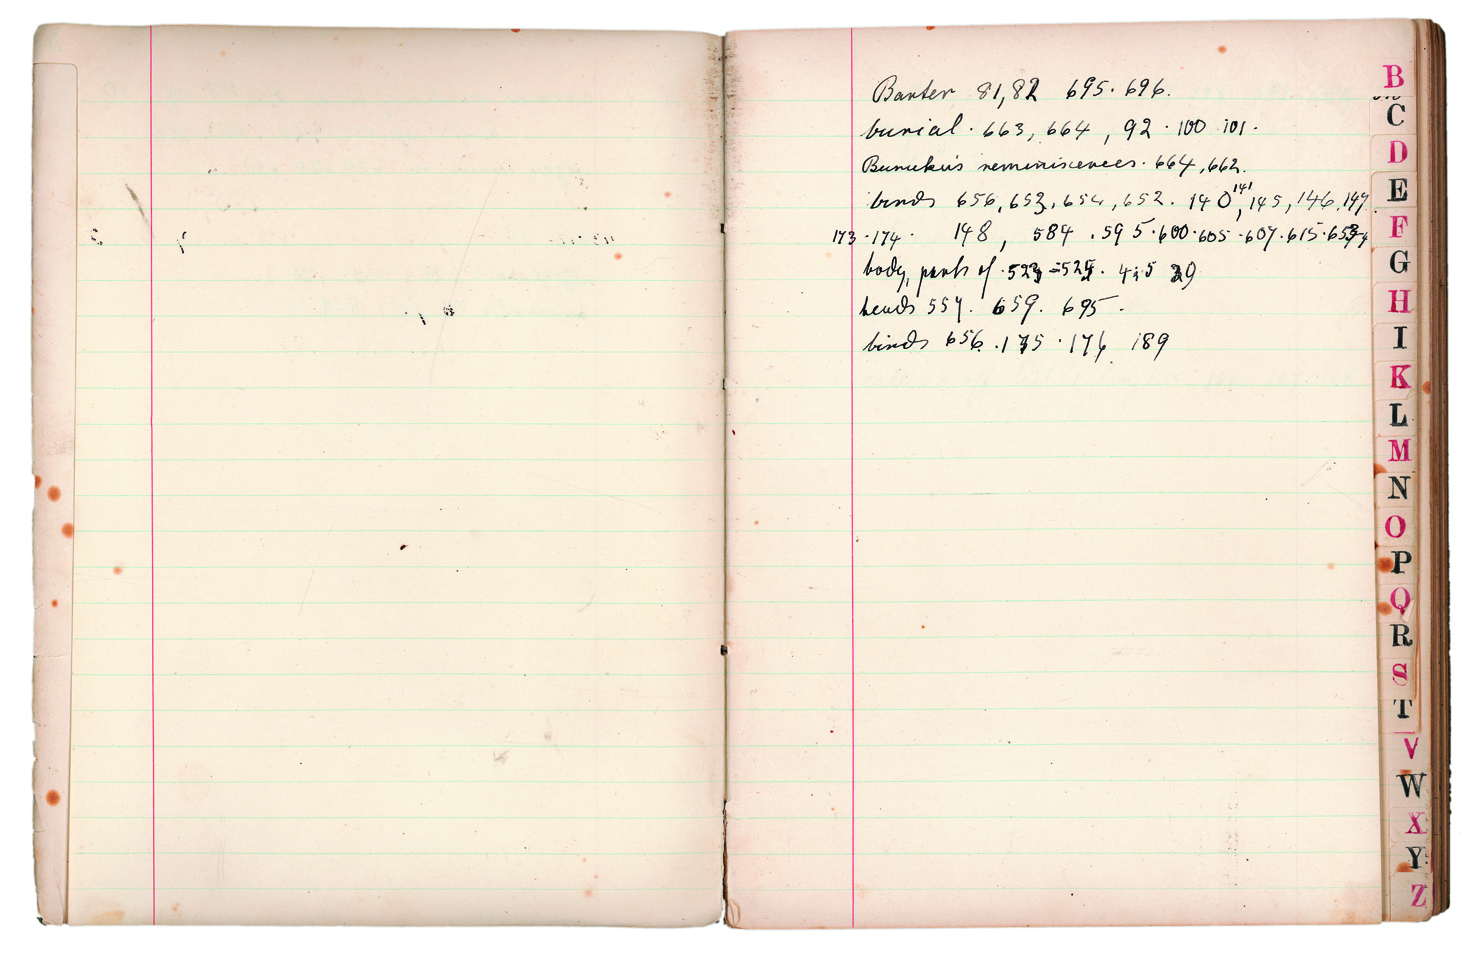 Barter 81, 82 695. 696.
burial. 663, 664, 92. 100 101.
reminiscences. 664, 662.
birds 656, 653, 654, 652. 140, 141, 145, 146, 147
173. 174. 148, 584. 595. 600. 605. 607. 615.
body, parts of
beads 557. 659. 695.
birds 656. 175. 176 189
B
C
D
E
F
G
H
I
K
L
M
N
O
P
Q
R
S
T
V
W
X
Y
Z